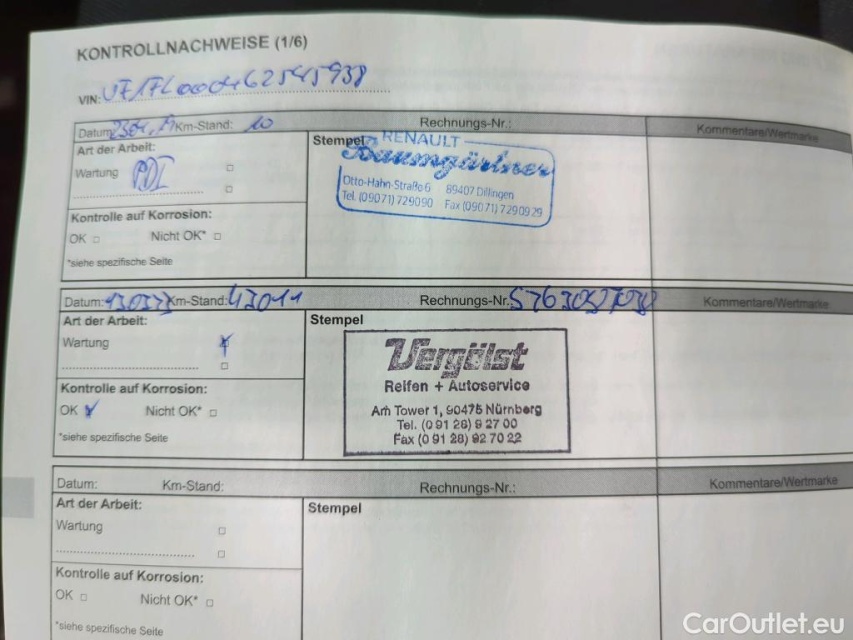 KONTROLLNACHWEISE (1/6)
VIN:
Datum: Km-Stand: 10 Rechnungs-Nr.: Kommentare/Wertmarke
Art der Arbeit:
Wartung PDI
Kontrolle auf Korrosion:
OK Nicht OK*
*siehe spezifische Seite
Stempel
RENAULT
Baumgärtner
Otto-Hahn-Straße 6 89407 Dillingen
Tel. (09071) 729090 Fax (09071) 7290929
Datum: Km-Stand: 43011 Rechnungs-Nr. Kommentare/Wertmarke
Art der Arbeit:
Wartung
Kontrolle auf Korrosion:
OK Nicht OK*
*siehe spezifische Seite
Stempel
Vergölst
Reifen + Autoservice
Am Tower 1, 90475 Nürnberg
Tel. (0 91 28) 9 27 00
Fax (0 91 28) 92 70 22
Datum: Km-Stand: Rechnungs-Nr.: Kommentare/Wertmarke
Art der Arbeit:
Wartung
Kontrolle auf Korrosion:
OK Nicht OK*
*siehe spezifische Seite
Stempel
CarOutlet.eu